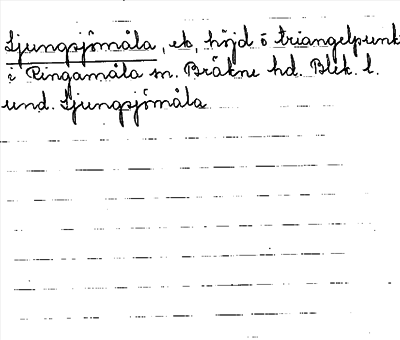 Ljungsjömåla, ek, höjd ö triangelpunk
i Ringamåla sn. Bräkne hd. Blek. l.
und. Ljungsjömåla